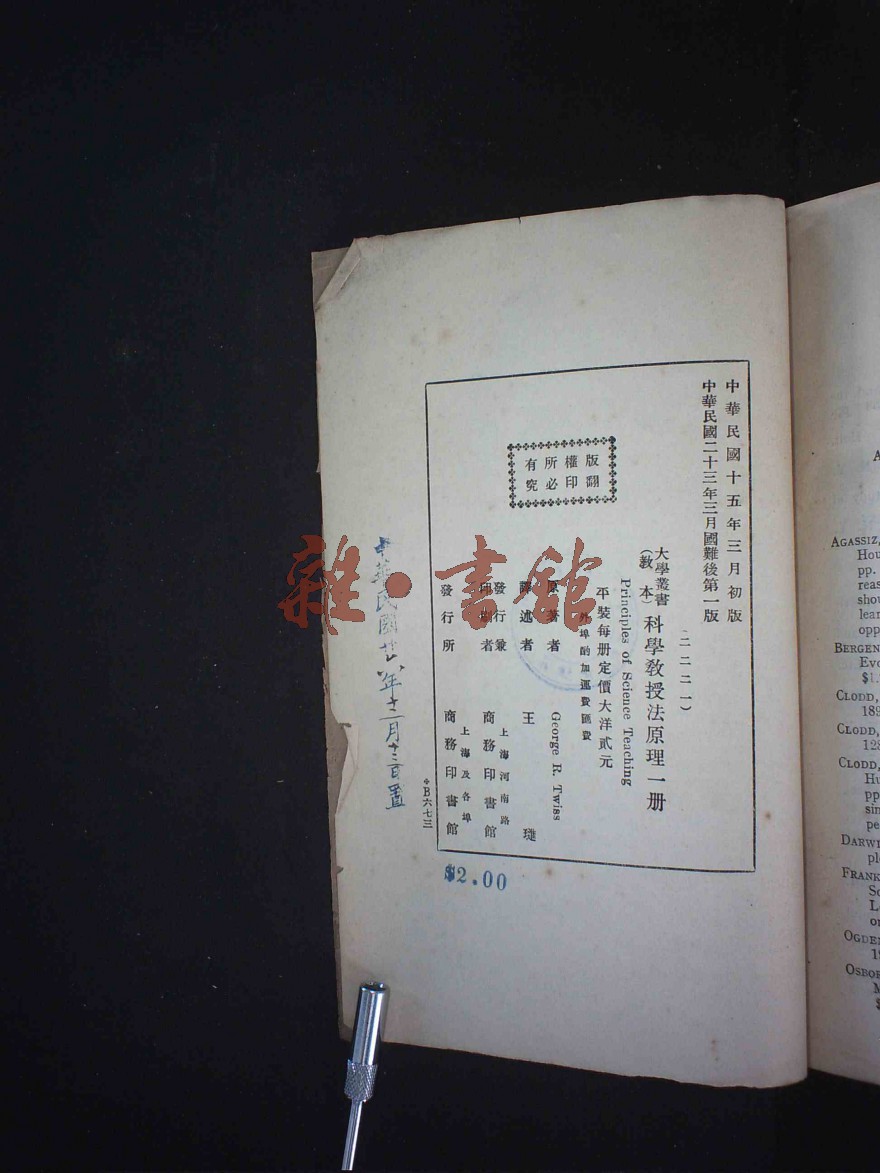 中華民國十五年三月初版
中華民國二十三年三月國難後第一版
(二二二一)
大學叢書
(教本)
科學教授法原理一册
Principles of Science Teaching
平裝每册定價大洋貳元
外埠酌加運費匯費
版權所有
翻印必究
原著者 George R. Twiss
譯述者 王璡
發行兼印刷者 上海河南路 商務印書館
發行所 上海及各埠 商務印書館
＊B六七三
中華民國廿八年十二月十二日置
$2.00
雜·書館
AGASSIZ,
Hou
pp.
reas
shou
lear
opp
BERGEN
Evo
$1.
CLODD,
189
CLODD,
128
CLODD,
Hu
pp
sin
pe
DARWI
pl
FRANK
So
L
on
OGDEN
19
OSBOR
M
$